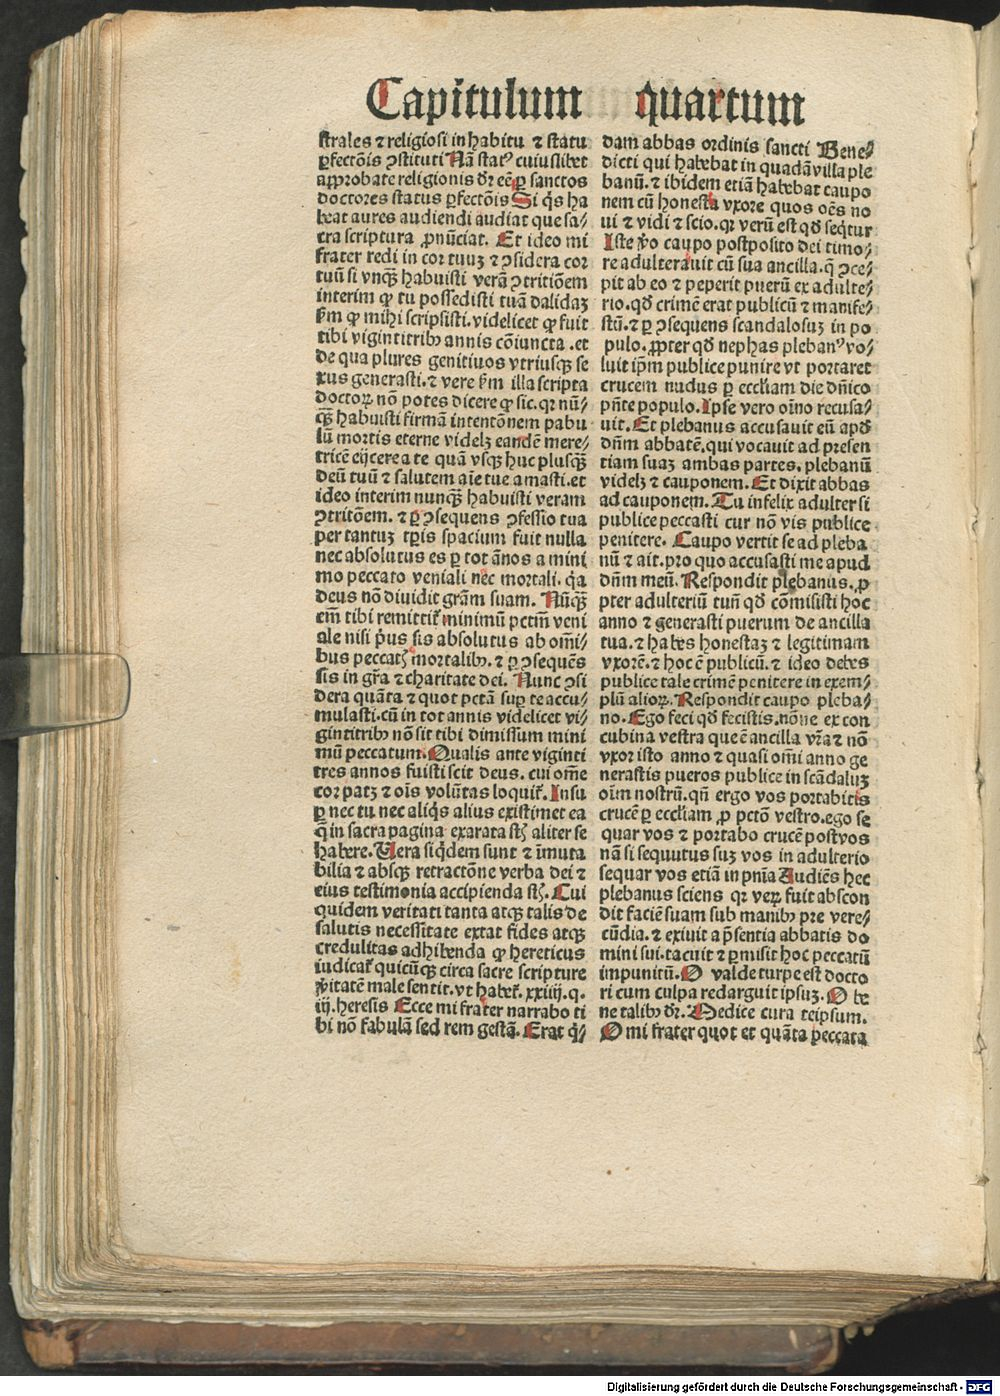 Capitulum quartum
strales ⁊ religiosi in habitu ⁊ statu
ꝑfectōis ꝯstituti Nā statꝰ cuiuslibet
approbate religionis dr̄ eē ꝑ sanctos
doctores status ꝑfectōis Si q̇s ha
beat aures audiendi audiat que sa⸗
cra scriptura ꝓnūciat. Et ideo mi
frater redi in cor tuuꝫ ⁊ ꝯsidera cor
tuū si vnqꝫ̄ habuisti verā ꝯtritiōem
interim ꝙ tu possedisti tuā dalidaꝫ
ẜm ꝙ mihi scripsisti. videlicet ꝙ fuit
tibi vigintitribꝰ annis cōiuncta .et
de qua plures genitiuos vtriusqꝫ se
xus generasti. ⁊ vere ẜm illa scripta
doctoꝝ nō potes dicere ꝙ sic. qꝛ nū⸗
qꝫ̄ habuisti firmā intentōnem pabu
lū mortis eterne videlꝫ eandē mere⸗
tricē eijcere a te quā vsqꝫ huc plusqꝫ̄
deū tuū ⁊ salutem aīe tue amasti. et
ideo interim nunqꝫ̄ habuisti veram
ꝯtritōem. ⁊ ꝑ ꝯsequens ꝯfessio tua
per tantuꝫ tꝑis spacium fuit nulla
nec absolutus es ꝑ tot ānos a mini
mo peccato veniali nec mortali. q̇a
deus nō diuidit grām suam. Nūqꝫ̄
em̄ tibi remittit᷑ minimū pctm̄ veni
ale nisi pͥus sis absolutus ab om̄i⸗
bus peccatꝭ mortalibꝰ. ⁊ ꝑ ꝯsequēs
sis in gr̄a ⁊ charitate dei. Nunc ꝯsi
dera quāta ⁊ quot pctā suꝑ te accu⸗
mulasti. cū in tot annis videlicet vi⸗
gintitribꝰ nō sit tibi dimissum mini
mū peccatum. Qualis ante viginti
tres annos fuisti scit deus. cui om̄e
cor patꝫ ⁊ oīs volūtas loquit᷑. Insu
ꝑ nec tu nec aliq̇s alius existimet ea
q̄ in sacra pagina exarata st̄ aliter se
habere. Uera siq̇dem sunt ⁊ īmuta
bilia ⁊ absqꝫ retractōne verba dei ⁊
eius testimonia accipienda st̄. Cui
quidem veritati tanta atqꝫ talis de
salutis necessitate extat fides atqꝫ
credulitas adhibenda ꝙ hereticus
iudicat᷑ quicūqꝫ circa sacre scripture
v̓itatē male sentit. vt habet᷑. xxiiij. q.
iij. heresis Ecce mi frater narrabo ti
bi nō fabulā sed rem gestā. Erat q̇⸗
dam abbas ordinis sancti Bene⸗
dicti qui habebat in quadā villa ple
banū. ⁊ ibidem etiā habebat caupo
nem cū honesta vxore quos oēs no
ui ⁊ vidi ⁊ scio. qꝛ verū est qđ seq̇tur
Iste v̓o caupo postposito dei timo⸗
re adulterauit cū sua ancilla. q̄ ꝯce⸗
pit ab eo ⁊ peperit puerū ex adulte⸗
rio. qđ crimē erat publicū ⁊ manife⸗
stū. ⁊ ꝑ ꝯsequens scandalosuꝫ in po
pulo. ꝓpter qđ nephas plebanꝰ vo⸗
luit ip̄m publice punire vt portaret
crucem nudus ꝑ eccl̄iam die dn̄ico
pn̄te populo. Ipse vero oīno recusa⸗
uit. Et plebanus accusauit eū apđ
dn̄m abbatē. qui vocauit ad presen
tiam suaꝫ ambas partes. plebanū
videlꝫ ⁊ cauponem. Et dixit abbas
ad cauponem. Tu infelix adulter si
publice peccasti cur nō vis publice
penitere. Caupo vertit se ad pleba
nū ⁊ ait. pro quo accusasti me apud
dn̄m meū. Respondit plebanus. ꝓ
pter adulteriū tuū qđ cōmisisti hoc
anno ⁊ generasti puerum de ancilla
tua. ⁊ habes honestaꝫ ⁊ legitimam
vxorē. ⁊ hoc ē publicū. ⁊ ideo debes
publice tale crimē penitere in exem⸗
plū alioꝝ. Respondit caupo pleba⸗
no. Ego feci qđ fecistis. nōne ex con
cubina vestra que ē ancilla vr̄a ⁊ nō
vxor isto anno ⁊ quasi om̄i anno ge
nerastis pueros publice in scādaluꝫ
oīm nostrū. qn̄ ergo vos portabitis
crucē ꝑ eccl̄iam ꝓ pctō vestro. ego se
quar vos ⁊ portabo crucē post vos
nā si sequutus suꝫ vos in adulterio
sequar vos etiā in pn̄ia Audiēs hec
plebanus sciens qꝛ veꝝ fuit abscon
dit faciē suam sub manibꝰ pre vere⸗
cūdia. ⁊ exiuit a p̄sentia abbatis do
mini sui. tacuit ⁊ ꝑmisit hoc peccatū
impunitū. O valde turpe est docto
ri cum culpa redarguit ipsuꝫ. O be
ne talibꝰ dr̄. Medice cura teipsum.
O mi frater quot et quāta peccata
Digitalisierung gefördert durch die Deutsche Forschungsgemeinschaft - DFG